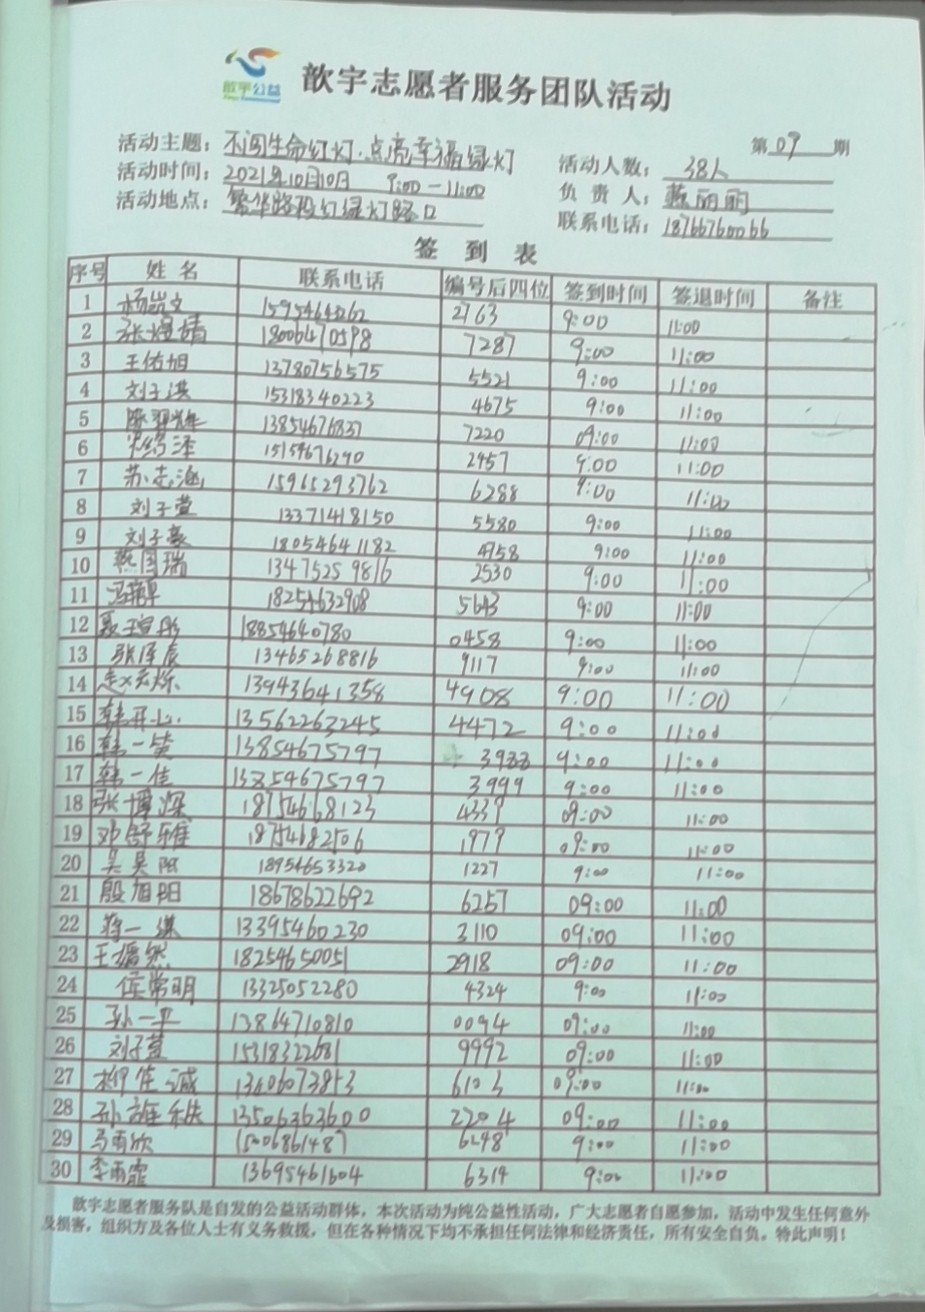 歆宇公益
歆宇志愿者服务团队活动
第09期
活动主题：不闯生命红灯·点亮幸福绿灯
活动人数：38人
活动时间：2021年10月10月 9:00-11:00
负责人：燕丽丽
活动地点：繁华路段红绿灯路口
联系电话：18766760066
签到表
序号 姓名 联系电话 编号后四位 签到时间 签退时间 备注
1 杨岚文 2763 9:00 11:00
2 张煜婧 18006470598 7287 9:00 11:00
3 王佑旭 13780756575 5521 9:00 11:00
4 刘子淇 15318340223 4675 9:00 11:00
5 13854676837 7220 09:00 11:00
6 15154676240 2457 9:00 11:00
7 苏志涵 15965293762 6288 9:00 11:00
8 刘子萱 13371418150 5580 9:00 11:00
9 刘子豪 18054641182 4758 9:00 11:00
10 燕国瑞 13475259816 2530 9:00 11:00
11 18254632908 5643 9:00 11:00
12 18854640780 0458 9:00 11:00
13 张泽辰 13465268816 9117 9:00 11:00
14 13943641358 4908 9:00 11:00
15 13562263245 4472 9:00 11:00
16 韩一笑 13854675797 3988 9:00 11:00
17 韩一佳 13854675797 3999 9:00 11:00
18 张博深 18754668123 4339 09:00 11:00
19 邓舒雅 18754682506 1979 09:00 11:00
20 吴昊阳 18954653320 1227 9:00 11:00
21 殷旭阳 18678622692 6257 09:00 11:00
22 蒋一谋 13395460230 3110 09:00 11:00
23 王嫣然 18254650051 2918 09:00 11:00
24 侯常明 13325052280 4324 9:00 11:00
25 孙一平 13864710810 0094 09:00 11:00
26 刘子萱 15318322681 9992 09:00 11:00
27 柳佳诚 13406073853 6103 09:00 11:00
28 13506363600 2204 09:00 11:00
29 马雨欣 15006861487 6248 9:00 11:00
30 李雨霏 13695461604 6314 9:00 11:00
歆宇志愿者服务队是自发的公益活动群体，本次活动为纯公益性活动，广大志愿者自愿参加，活动中发生任何意外
及损害，组织方及各位人士有义务救援，但在各种情况下均不承担任何法律和经济责任，所有安全自负。特此声明！